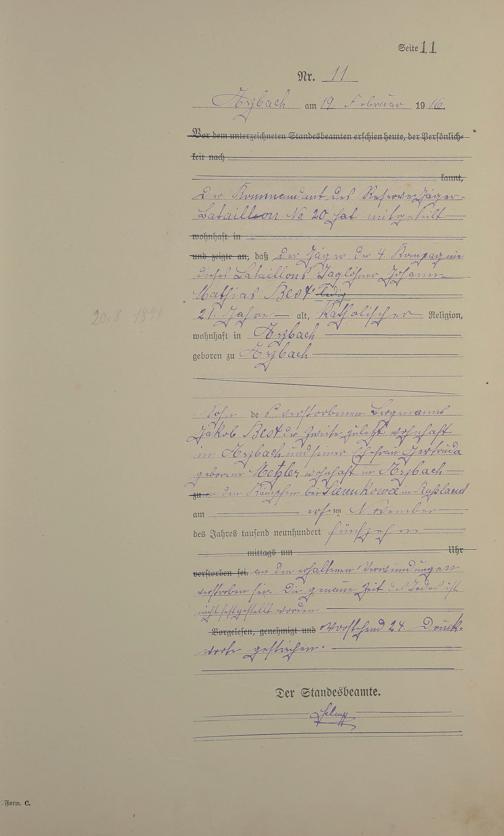 Seite 11
Nr. 11
Arzbach am 19 Februar 1916.
Vor dem unterzeichneten Standesbeamten erschien heute, der Persönlich-
keit nach
kannt,
Der Kommandant des Reserve-Jäger-
Bataillons No 20 hat mitgeteilt
wohnhaft in
und zeigte an, daß der Jäger der 4 Kompagnie
dieses Bataillons Taglöhner Johann
Mathias Best
21 Jahre alt, katholischer Religion,
wohnhaft in Arzbach
geboren zu Arzbach
20.8. 1894
Sohn des verstorbenen Bergmanns
Jakob Best der Zweite zuletzt wohnhaft
in Arzbach und seiner Ehefrau Gertruda
geborene Metzler wohnhaft in Arzbach
zu den Kämpfen bei in Rußland
am November
des Jahres tausend neunhundert fünfzehn
mittags um Uhr
verstorben sei, an den erhaltenen Verwundungen
verstorben sei. Die genaue Zeit des Todes ist
nicht festgestellt worden
Vorgelesen, genehmigt und Vorstehend 24 Druck-
worte gestrichen.
Der Standesbeamte.
Form. C.